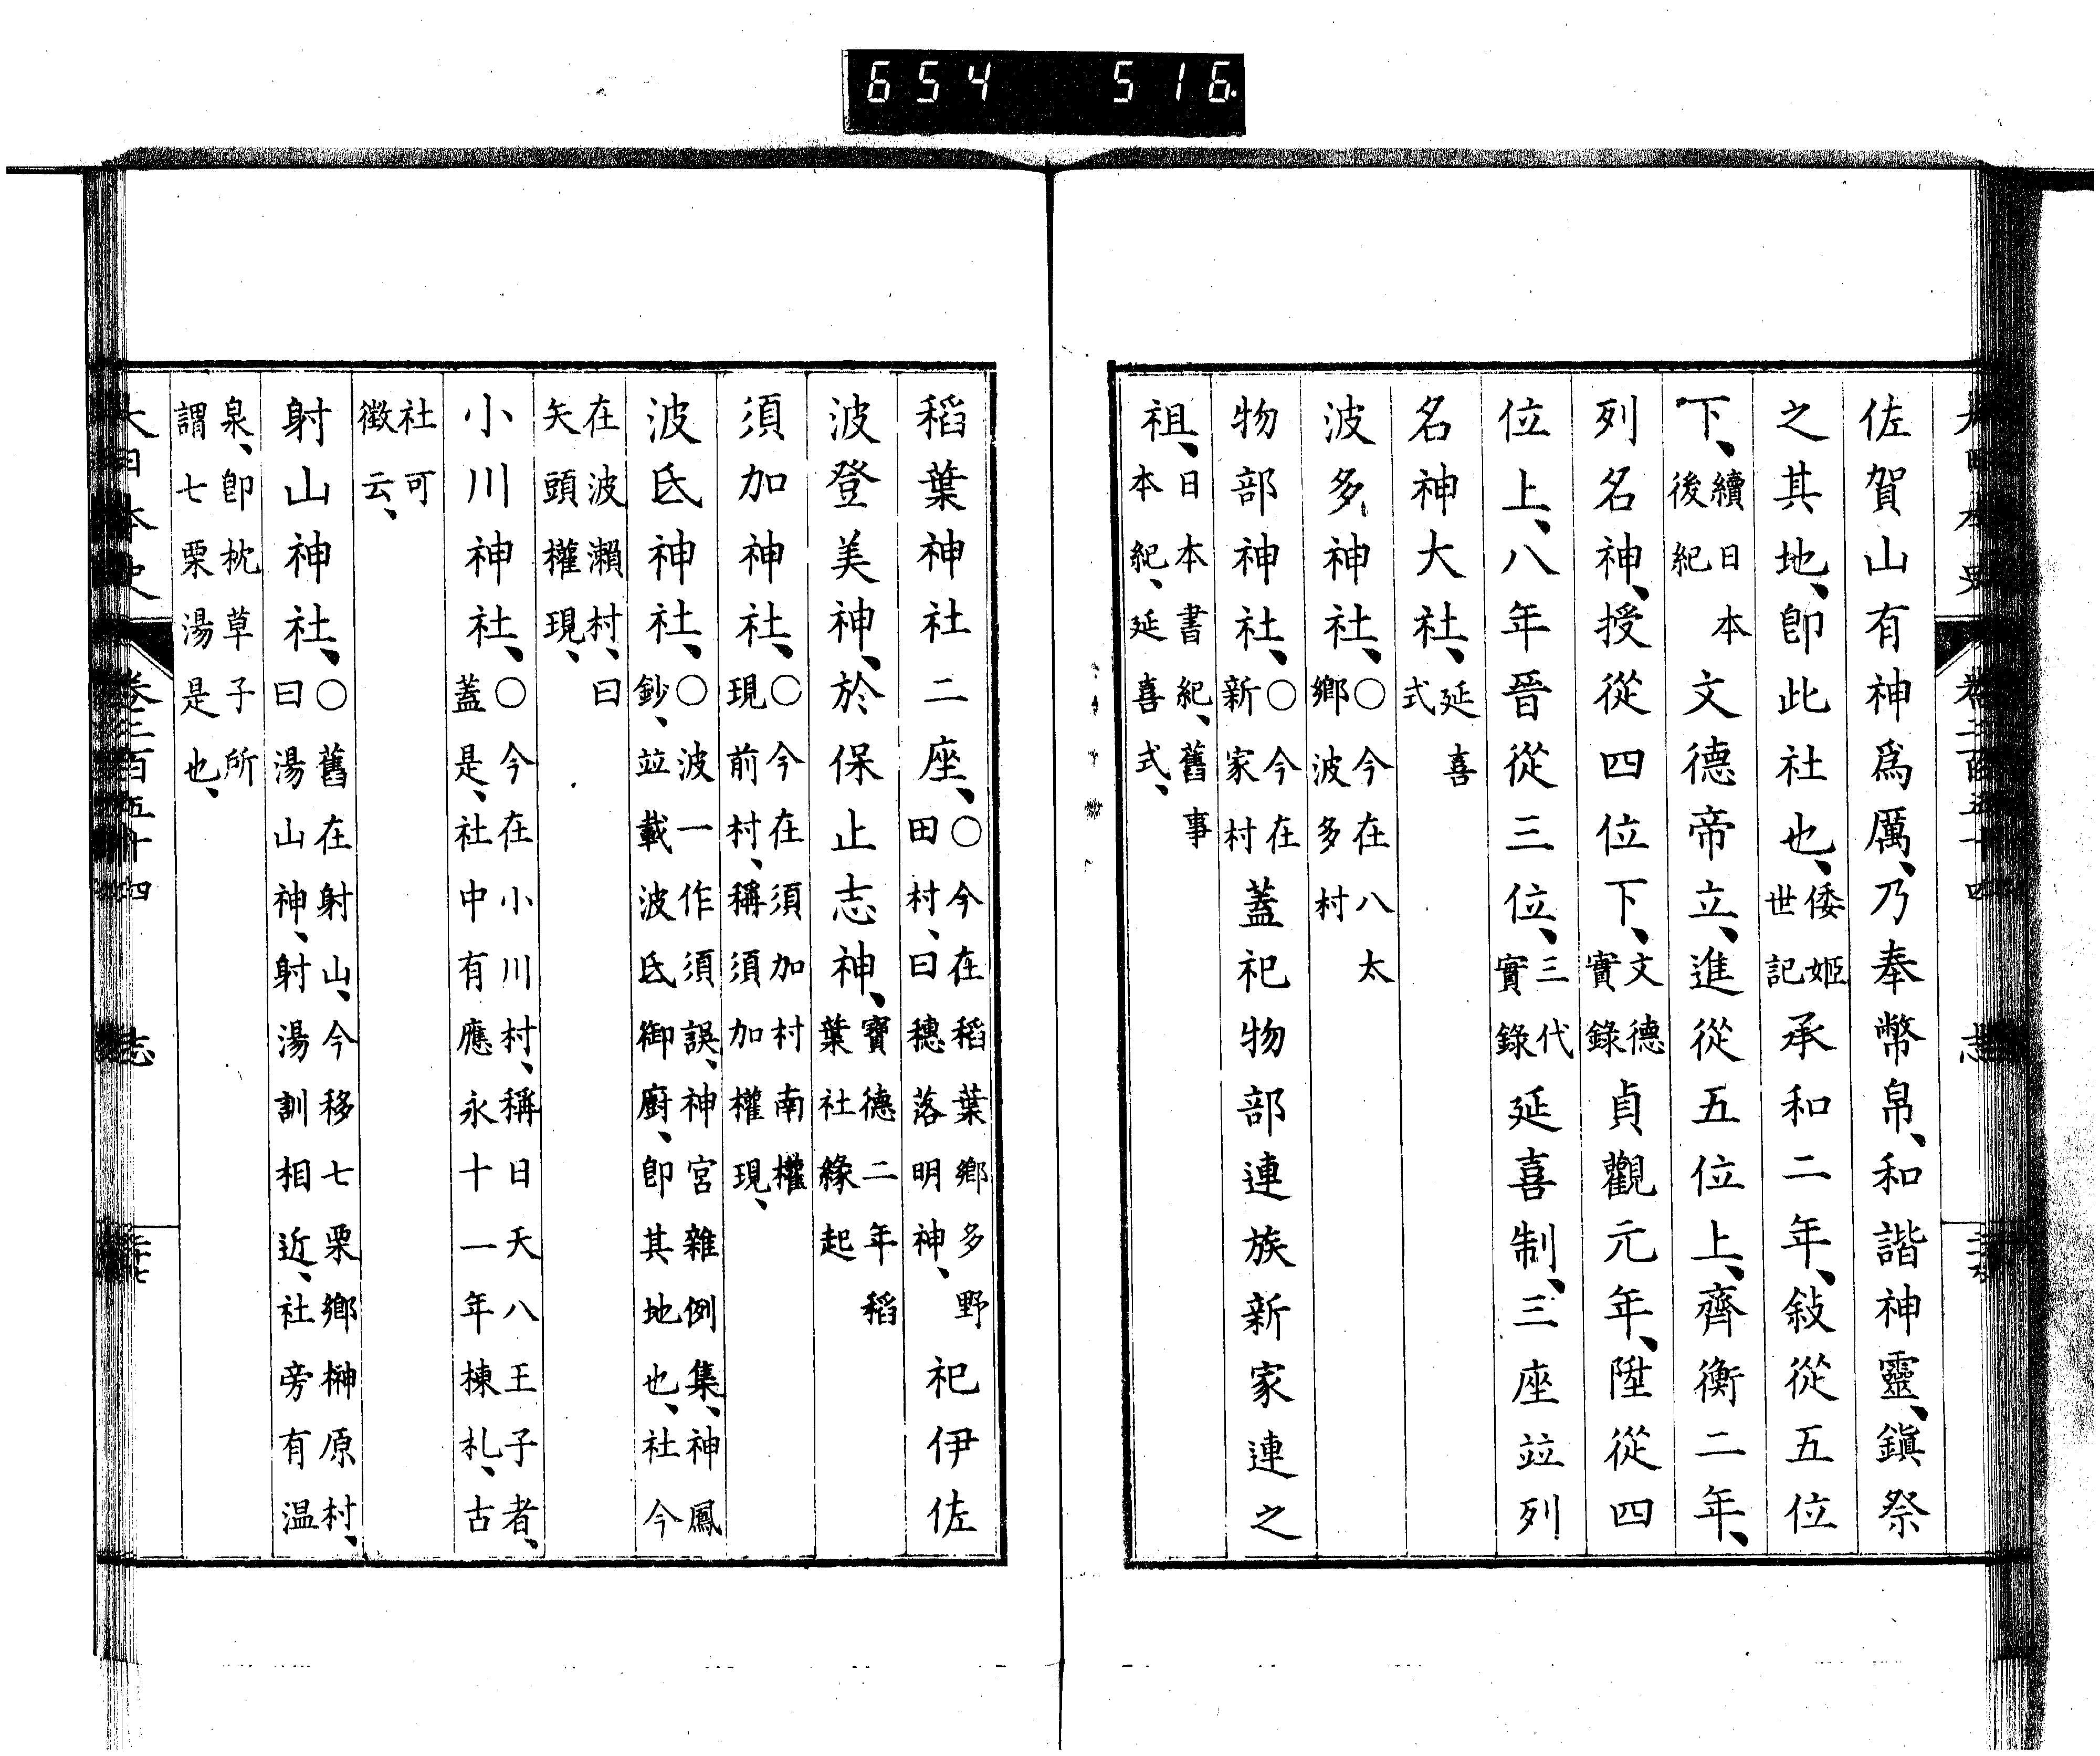 654 516
大日本史 卷二百五十四 志
佐賀山有神爲厲、乃奉幣帛、和諧神靈、鎭祭
之其地、卽此社也、倭姬世記承和二年、敍從五位
下、續日本後紀文德帝立、進從五位上、齊衡二年、
列名神、授從四位下、文德實錄貞觀元年、陞從四
位上、八年晉從三位、三代實錄延喜制、三座竝列
名神大社、延喜式
波多神社、○今在八太鄉波多村
物部神社、○今在新家村蓋祀物部連族新家連之
祖、日本書紀、舊事本紀、延喜式、
稻葉神社二座、○今在稻葉鄉多野田村、曰穗落明神、祀伊佐
波登美神、於保止志神、寶德二年稻葉社緣起
須加神社、○今在須加村南權現前村、稱須加權現、
波氐神社、○波一作須誤、神宮雜例集、神鳳鈔、竝載波氐御廚、卽其地也、社今
在波瀨村、曰矢頭權現、
小川神社、○今在小川村、稱日天八王子者、蓋是、社中有應永十一年棟札、古
社可徵云、
射山神社、○舊在射山、今移七栗鄉榊原村、曰湯山神、射湯訓相近、社旁有温
泉、卽枕草子所謂七栗湯是也、
大日本史 卷二百五十四 志